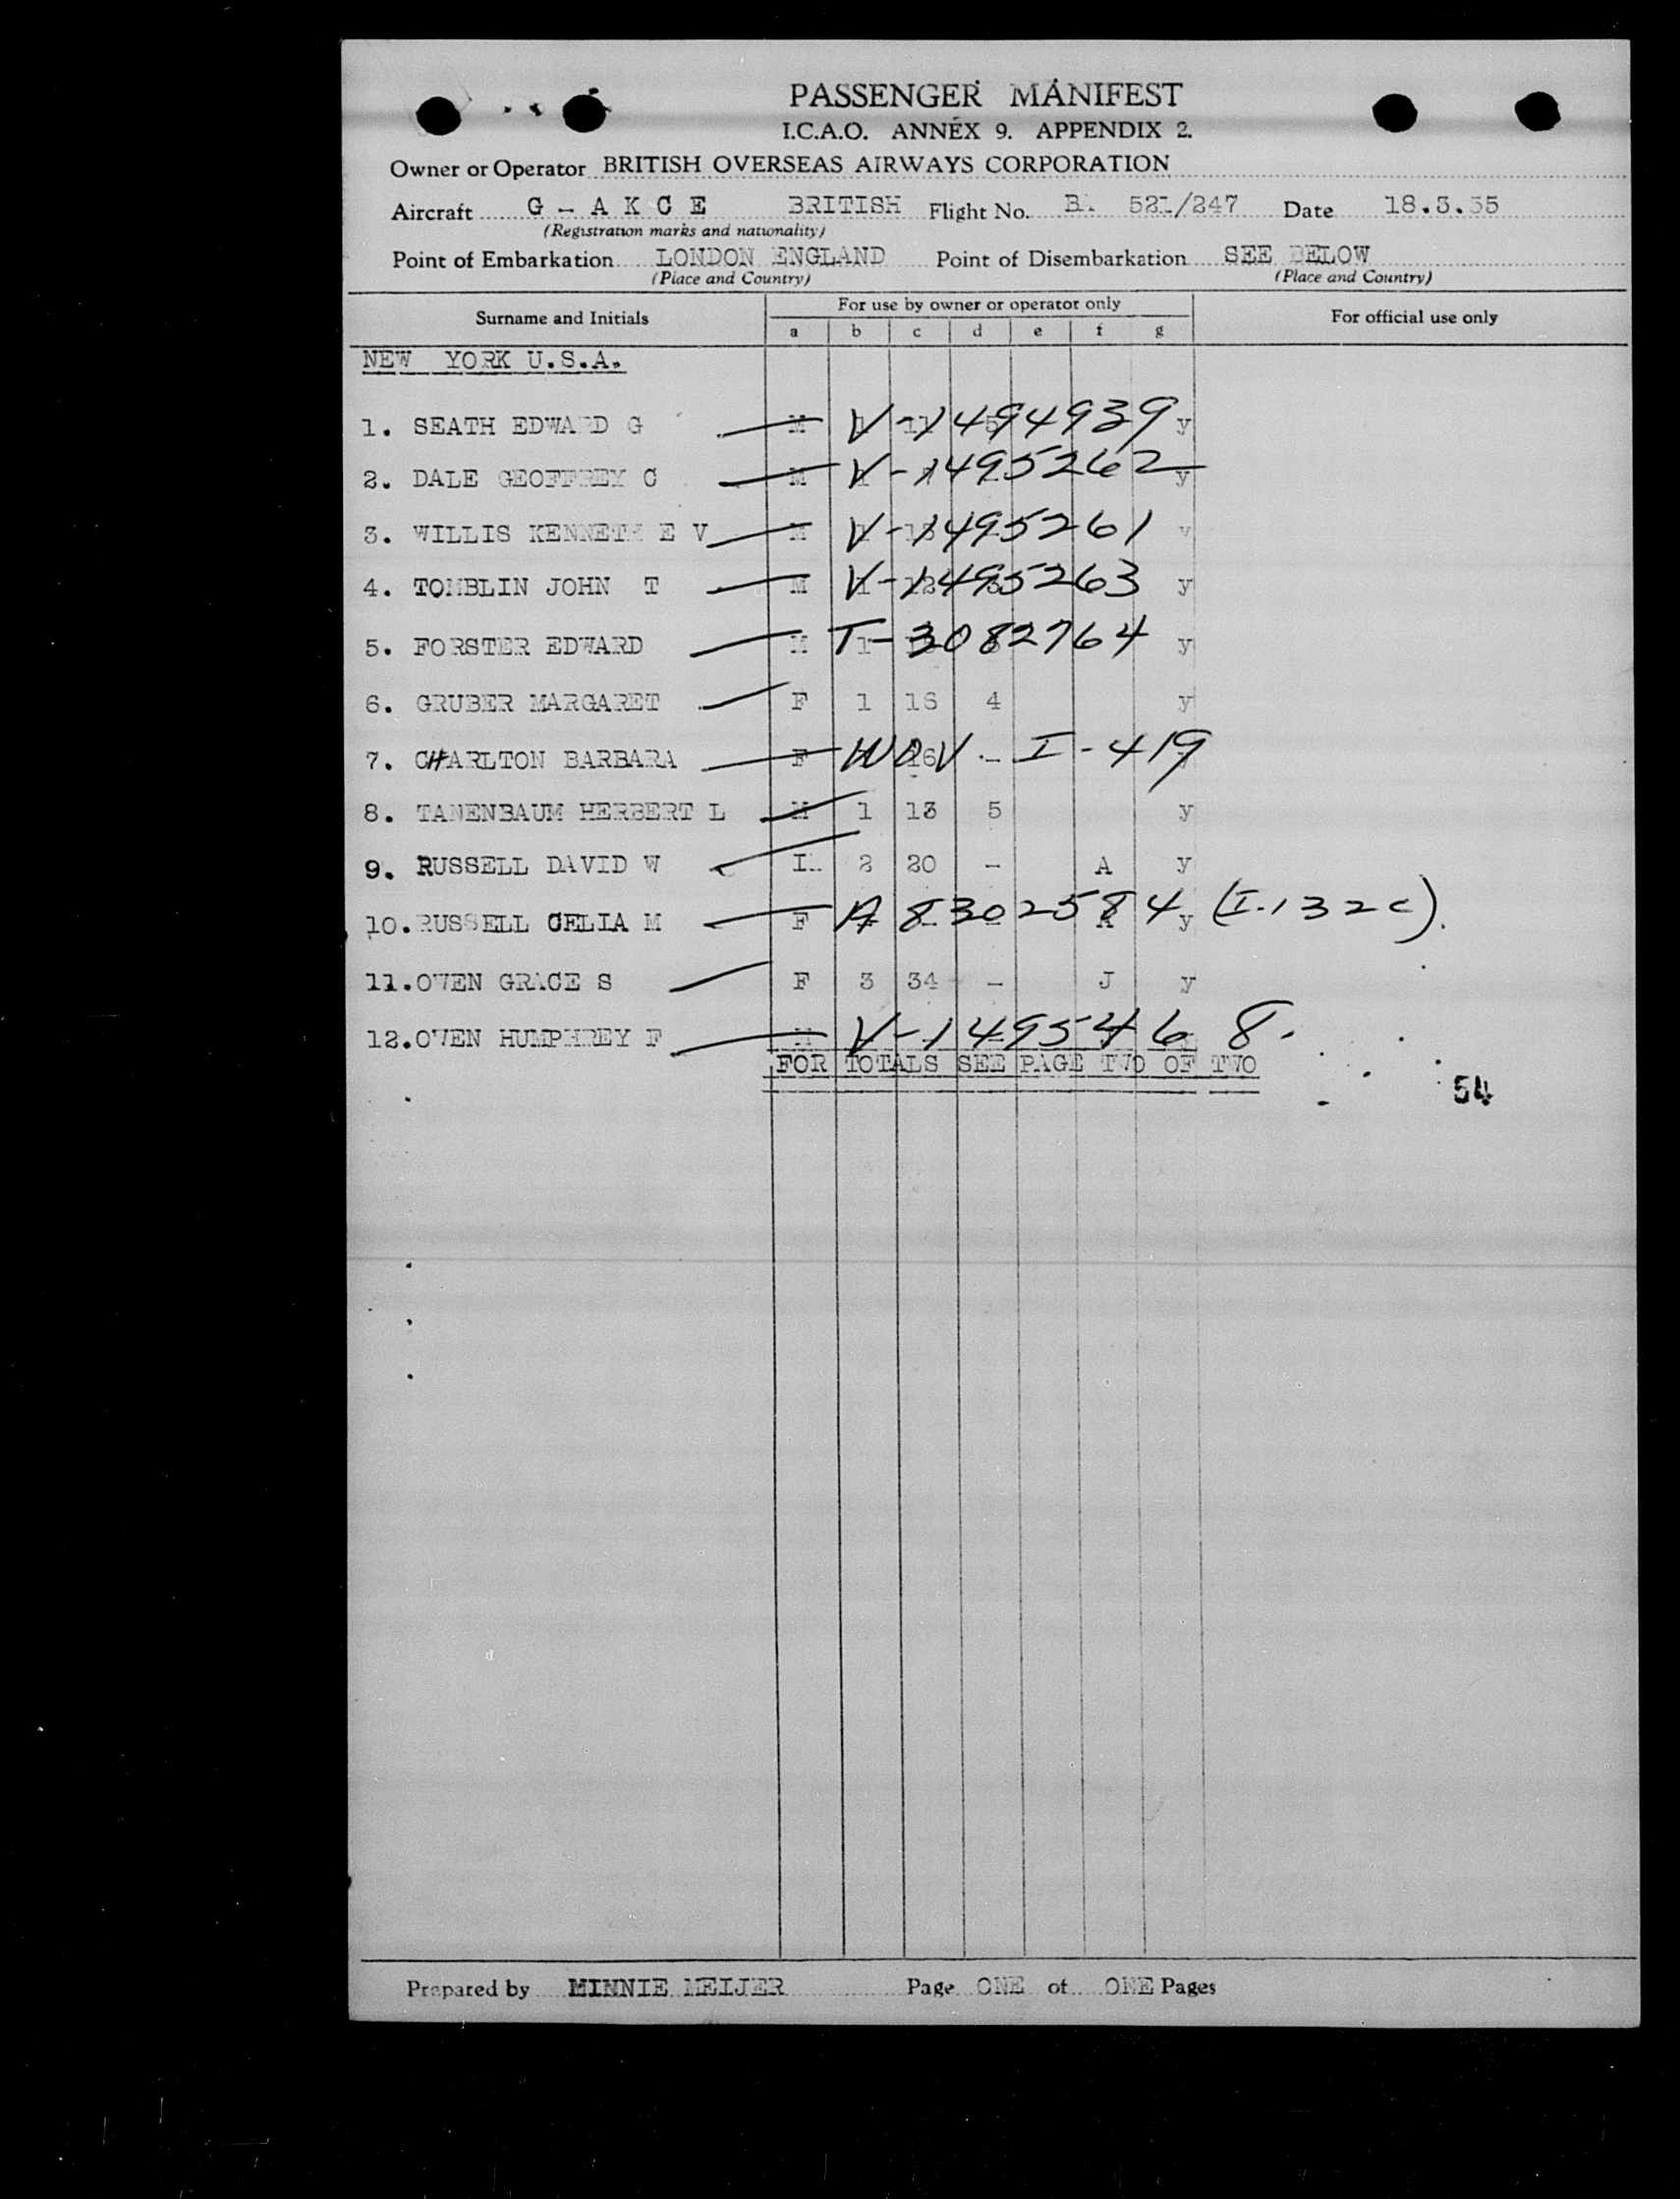 PASSENGER MANIFEST
I.C.A.O. ANNEX 9. APPENDIX 2.
Owner or Operator BRITISH OVERSEAS AIRWAYS CORPORATION
Aircraft G - A K C E BRITISH Flight No. 521/247 Date 18.3.55
(Registration marks and nationality)
Point of Embarkation LONDON ENGLAND Point of Disembarkation SEE BELOW
(Place and Country) (Place and Country)
Surname and Initials For use by owner or operator only For official use only
a b c d e f g
NEW YORK U.S.A.
1. SEATH EDWARD G M V-1494939 y
2. DALE GEOFFREY C M V-1495262 y
3. WILLIS KENNETH E V M V-1495261 y
4. TOMBLIN JOHN T M V-1495263 y
5. FORSTER EDWARD M T-3082764 y
6. GRUBER MARGARET F 1 16 4 y
7. CHARLTON BARBARA F WOV - I-419
8. TANENBAUM HERBERT L M 1 13 5 y
9. RUSSELL DAVID W 2 20 - A y
10. RUSSELL CELIA M F A 8302584 y (I-132c).
11. OWEN GRACE S F 3 34 - J y
12. OWEN HUMPHREY F M V-1495468.
FOR TOTALS SEE PAGE TWO OF TWO
54
Prepared by MINNIE MEIJER Page ONE of ONE Pages